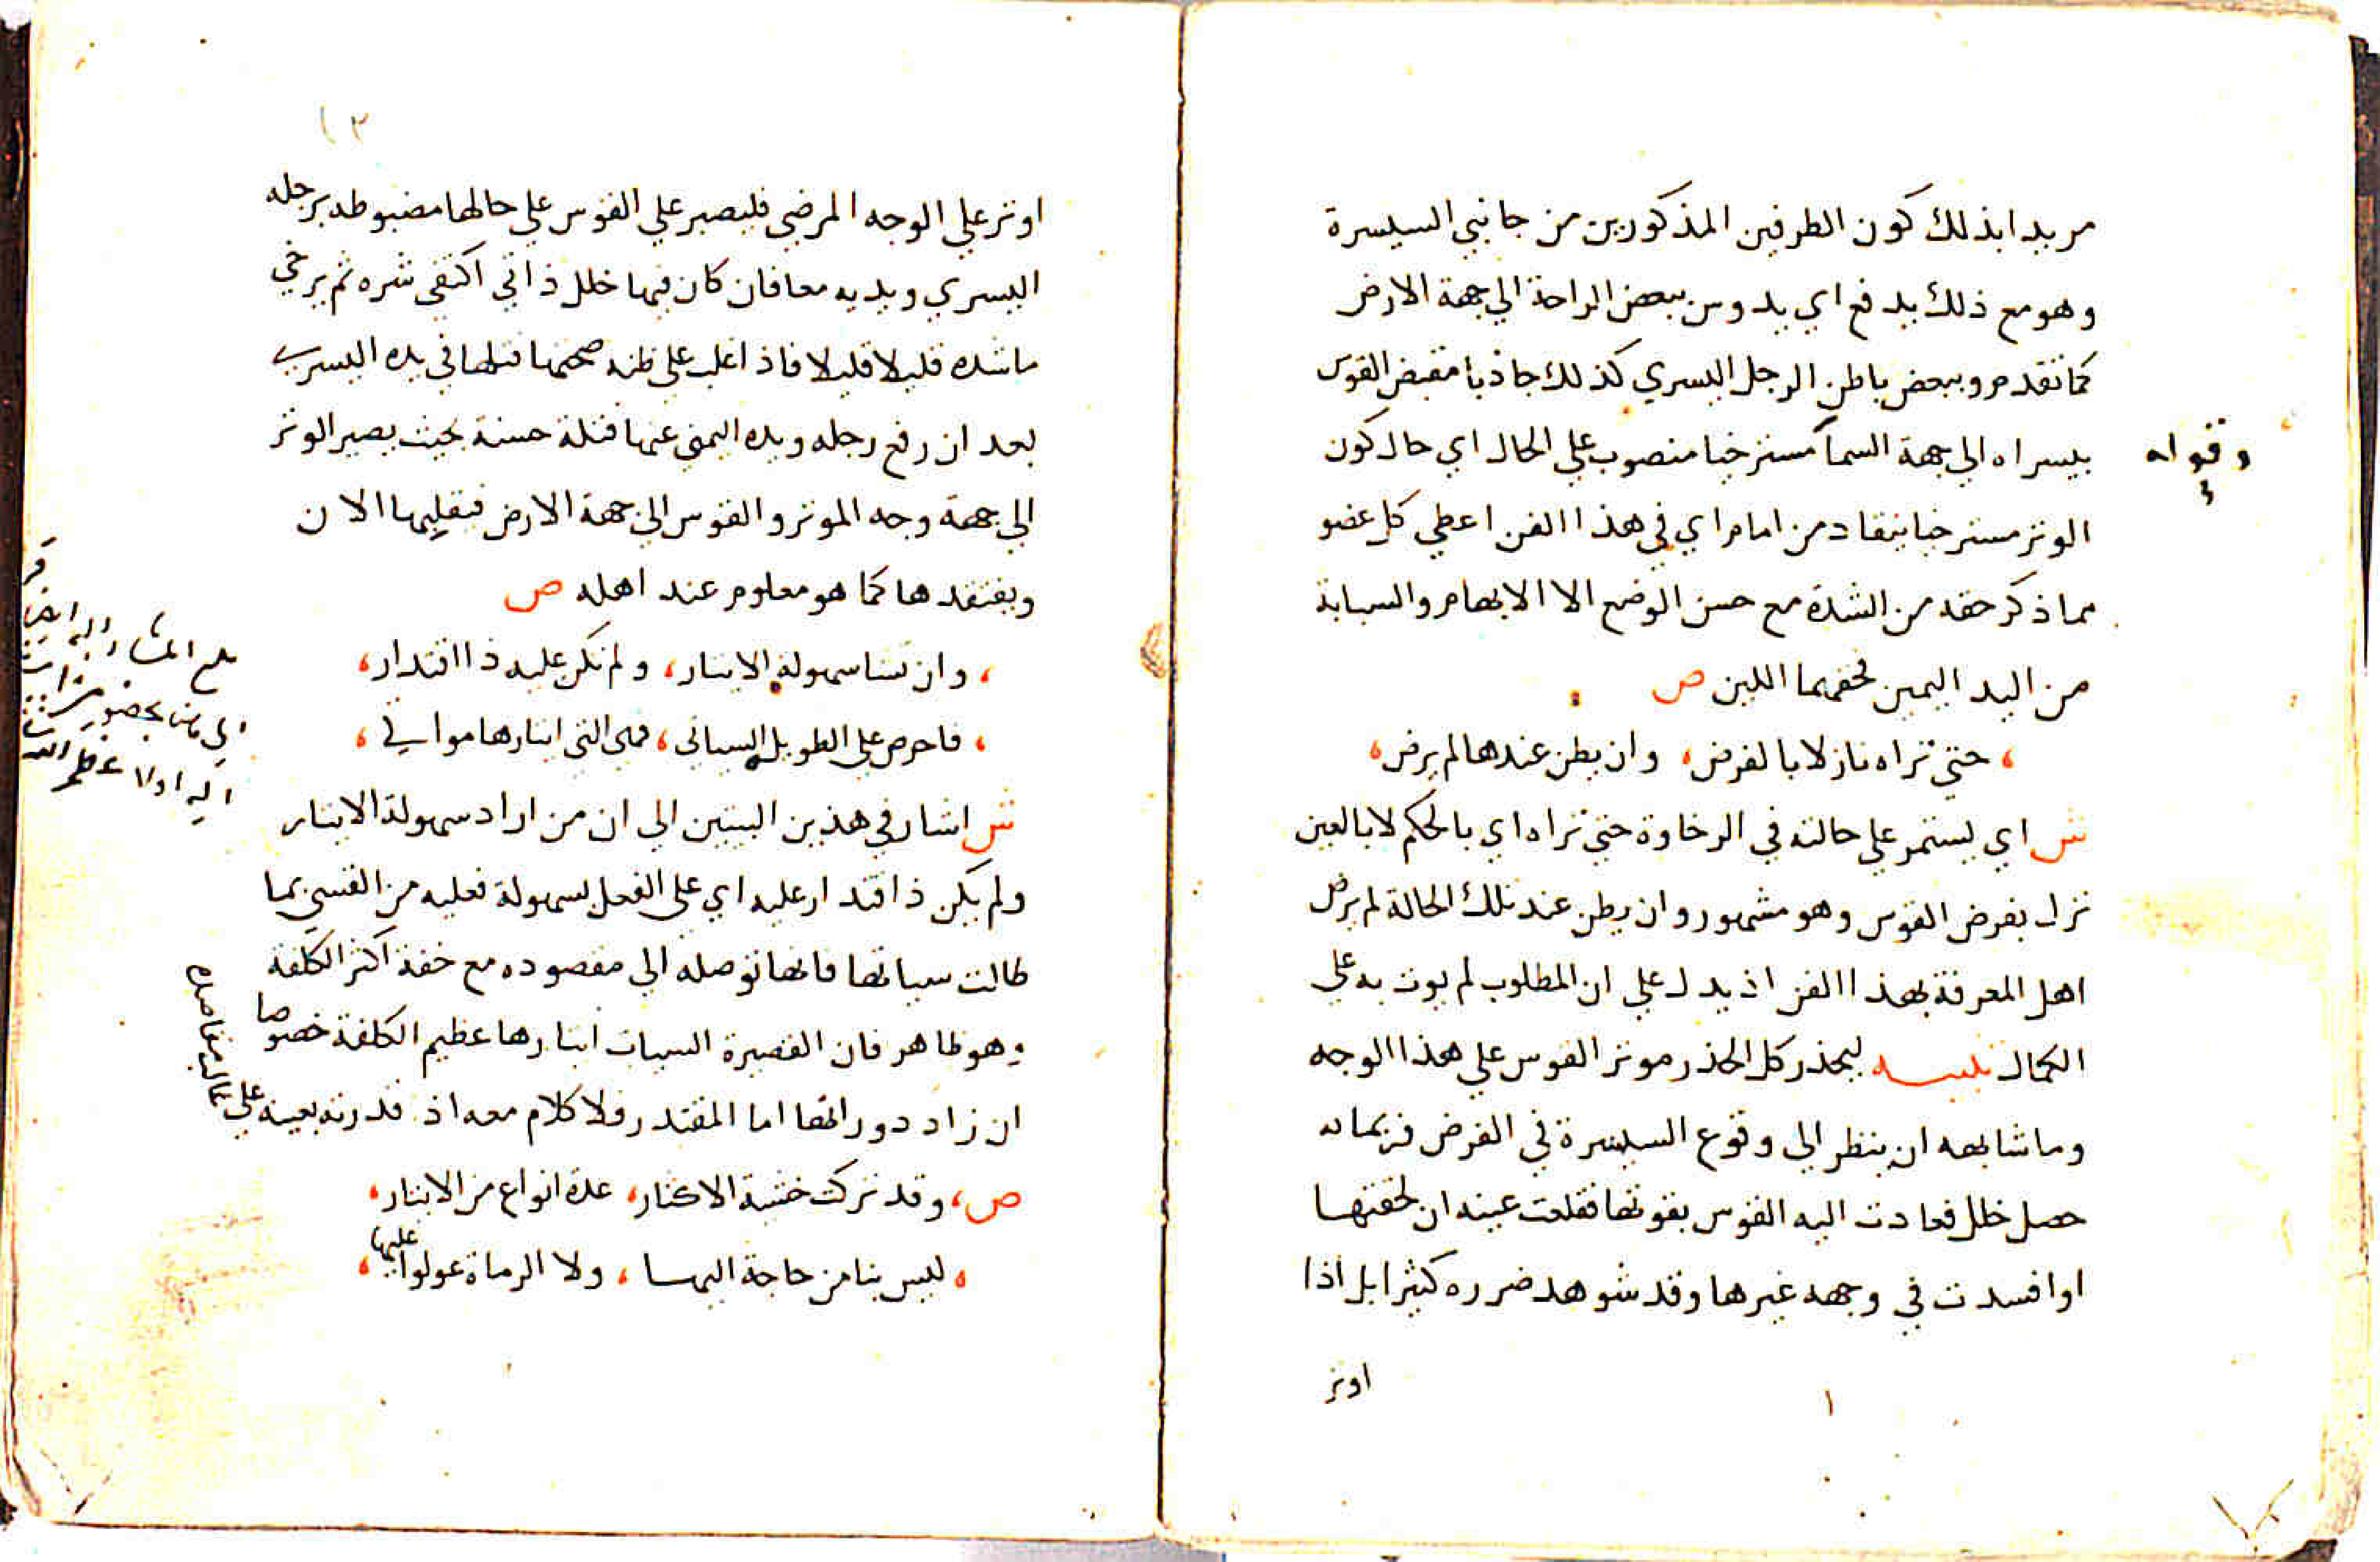 مريدا بذلك كون الطرفين المذكورين من جانبي السيسرة
وهو مع ذلك يدفع اي يدوس ببعض الراحة الي جهة الارض
كما تقدم وببعض باطن الرجل اليسري كذلك جاذبا مقبض القوس
بيسراه الي جهة السما مسترخيا منصوب علي الحال اي حال كون
وقوله
الوتر مسترخيا ينقاد من امام اي في هذا الفن اعطي كل عضو
مما ذكر حقه من الشدة مع حسن الوضع الا الابهام والسبابة
من اليد اليمين فحقهما اللين ص
، حتي تراه نازلا بالفرض، وان يطن عندها لم يرض،
ش اي ليستمر علي حالته في الرخاوة حتي تراه اي بالحكم لا بالعين
نزل بفرض القوس وهو مشهور وان يطن عند تلك الحالة لم يرض
اهل المعرفة بهذا الفن اذ يدل علي ان المطلوب لم يوت به علي
الكمال تنبيه ليحذر كل الحذر موتر القوس علي هذا الوجه
وما شابهه ان ينظر الي وقوع السيسرة في الفرض فربما
حصل خلل فعادت اليه القوس بقوتها فقلعت عينه ان لحقتها
او افسدت في وجهه غيرها وقد شوهد ضرره كثيرا بل اذا
اوتر
١٣
اوتر علي الوجه المرضي فليصبر علي القوس علي حالها مضبوطة برجله
اليسري ويديه معا فان كان فيها خلل ذاتي اكتفي شره ثم يرخي
ما شده قليلا قليلا فاذا غلب علي ظنه صحتها فتلها في يده اليسري
بعد ان رفع رجله ويده اليمني عنها فتلة حسنة بحيث يصير الوتر
الي جهة وجه الموتر والقوس الي جهة الارض فيقليها الان
ويفتقدها كما هو معلوم عند اهله ص
، وان تشا سهولة الايتار، ولم تكن عليه ذا اقتدار،
، فاحرص علي الطويل السياتي، فهي التي ايتارها مواتي،
ش اشار في هذين البيتين الي ان من اراد سهولة الايتار
ولم يكن ذا اقتدار عليه اي علي الفعل بسهولة فعليه من القسي بما
طالت سياتها فانها توصله الي مقصوده مع خفة اكثر الكلفة
وهو ظاهر فان القصيرة السيات ايتارها عظيم الكلفة خصوصا
ان زاد دورانها اما المقتدر فلا كلام معه اذ قدرته بعينه علي
ص، وقد تركت خشية الاكثار، عدة انواع من الايتار،
، ليس بنا من حاجة اليها، ولا الرماة عولوا عليها،